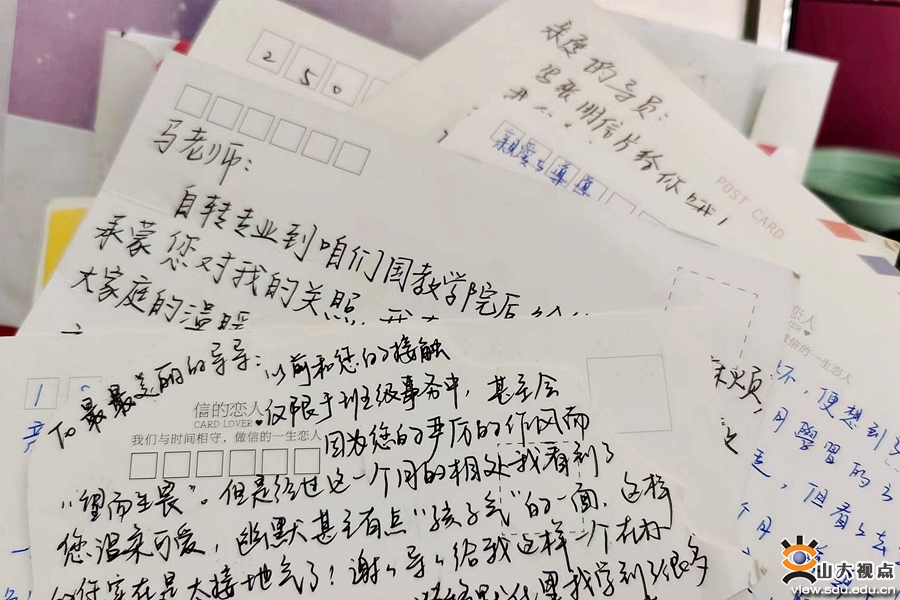 250
亲爱的导员：
写张明信片给你哦！
POST CARD
亲爱的導導
马老师：
自转专业到咱们国教学院后
承蒙您对我的关照，我
大家庭的温暖
To 最最美丽的导导：以前和您的接触
信的恋人
CARD LOVER
我们与时间相守，做信的一生恋人
仅限于班级事务中，甚至会
因为您的严厉的作风而
“望而生畏”。但是经过这一个月的相处我看到了
您温柔可爱，幽默甚至有点“孩子气”的一面，这样
的您实在是太接地气了！谢谢导导给我这样一个在办
我学到了很多
恋人
做信的一生恋人
便想到
月學習的
走，但看
个月
山大视点
view.sdu.edu.cn